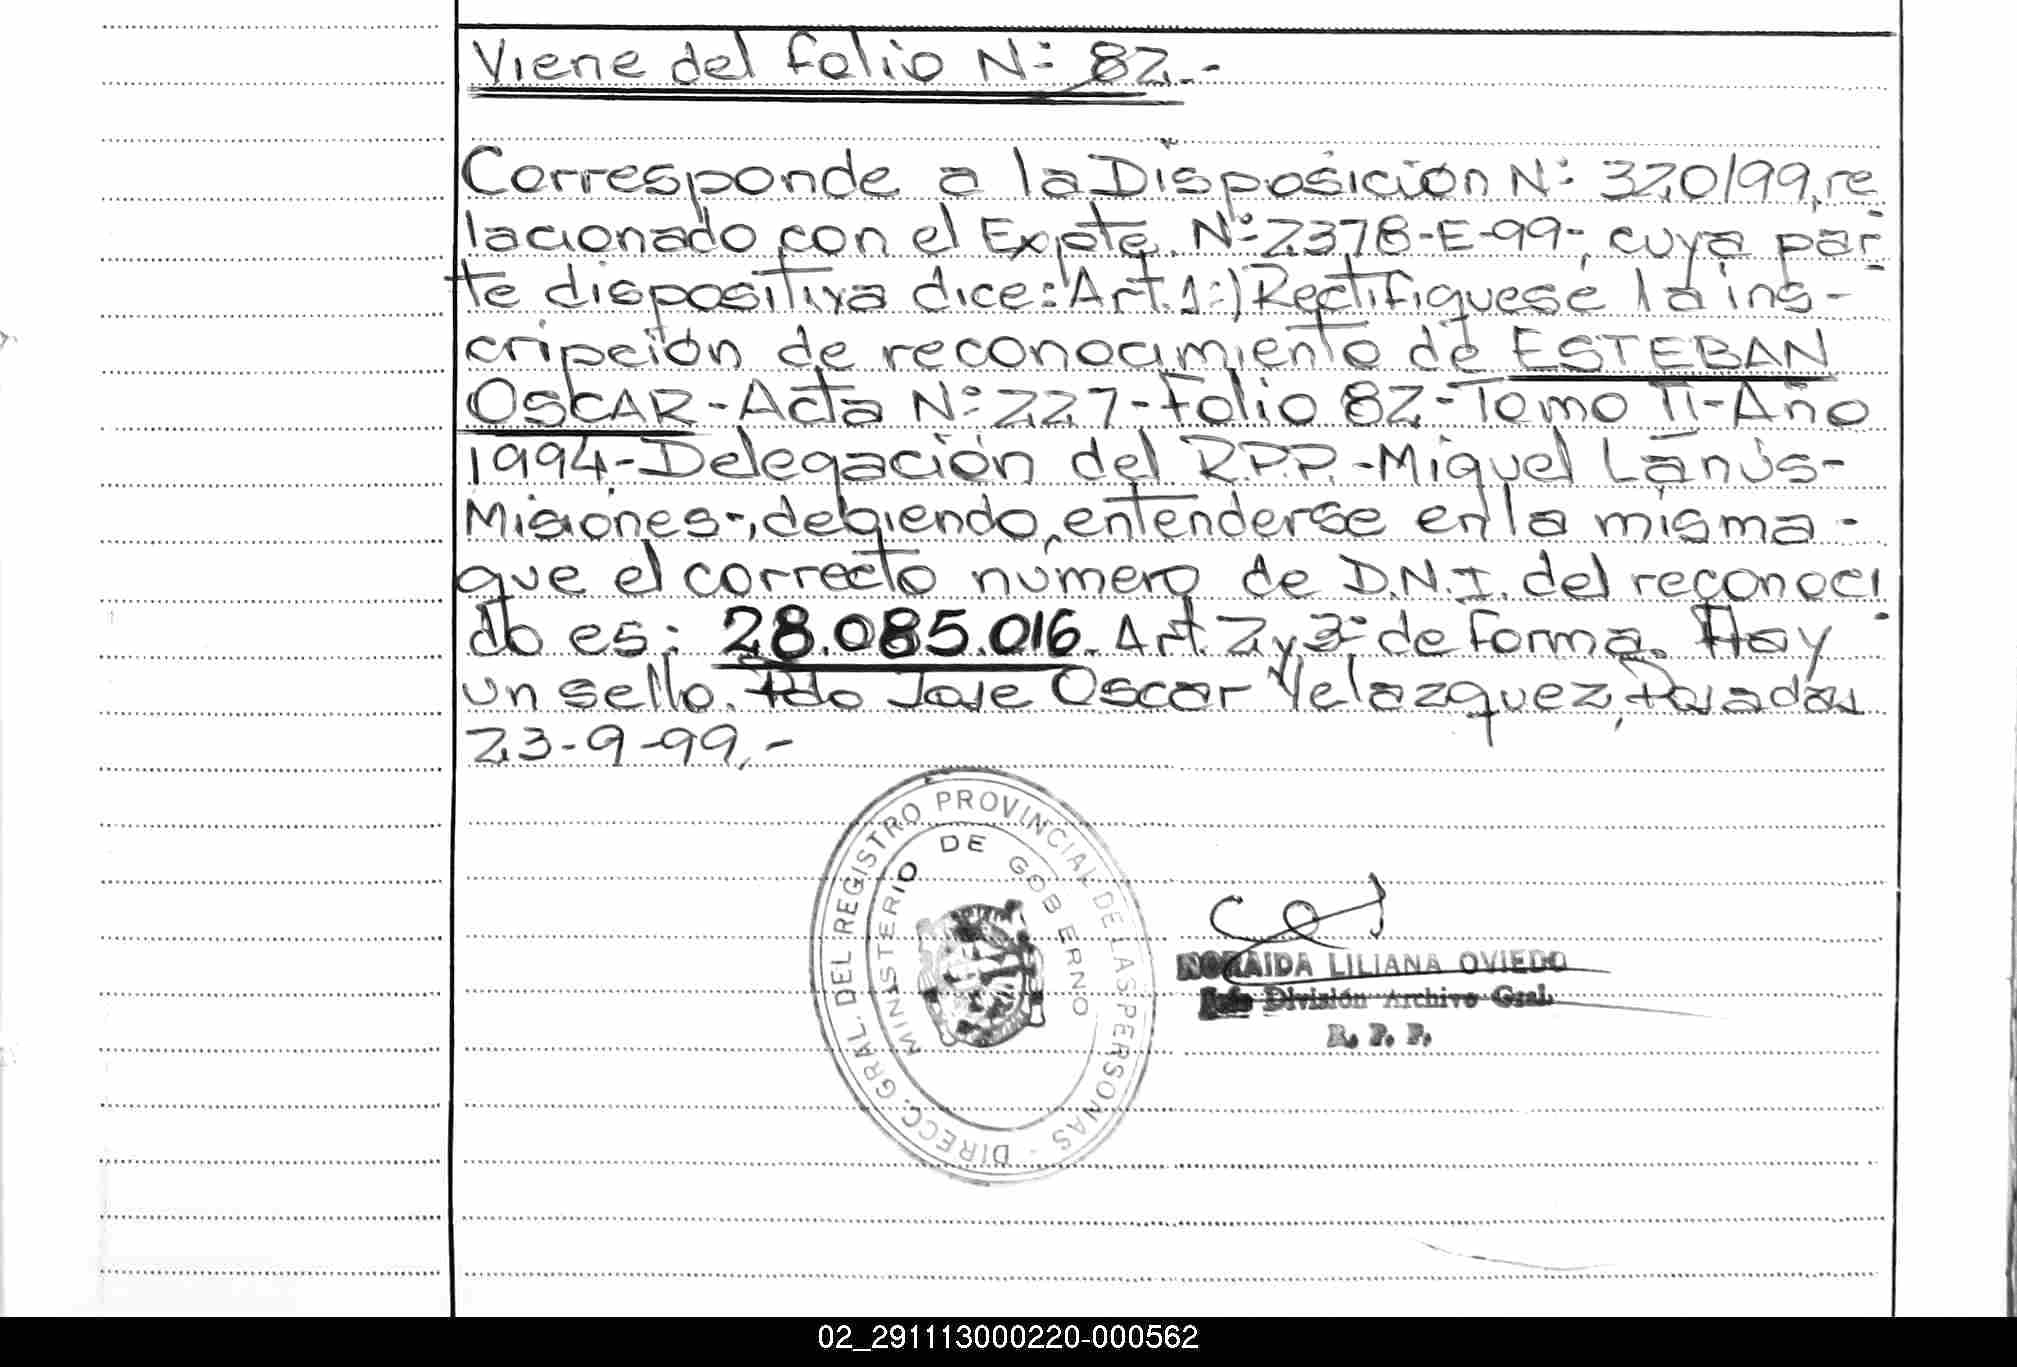 Viene del folio Nº 82.-
Corresponde a la Disposición Nº 320/99, re
lacionado con el Expte. Nº 2378-E-99-, cuya par
te dispositiva dice: "Art. 1º) Rectifiquese la ins-
cripción de reconocimiento de ESTEBAN
OSCAR-Acta Nº 227-Folio 82-Tomo II-Año
1994-Delegación del R.P.P.-Miguel Lanús-
Misiones-, debiendo entenderse en la misma -
que el correcto número de D.N.I. del reconoci
do es: 28.085.016. Art. 2 y 3º de forma. Hay
un sello. Fdo Jose Oscar Velazquez, Posadas
23-9-99.-
DIRECC. GRAL. DEL REGISTRO PROVINCIAL DE LAS PERSONAS -
MINISTERIO DE GOBIERNO
NORAIDA LILIANA OVIEDO
Jefe División Archivo Gral.
R. P. P.
02_291113000220-000562